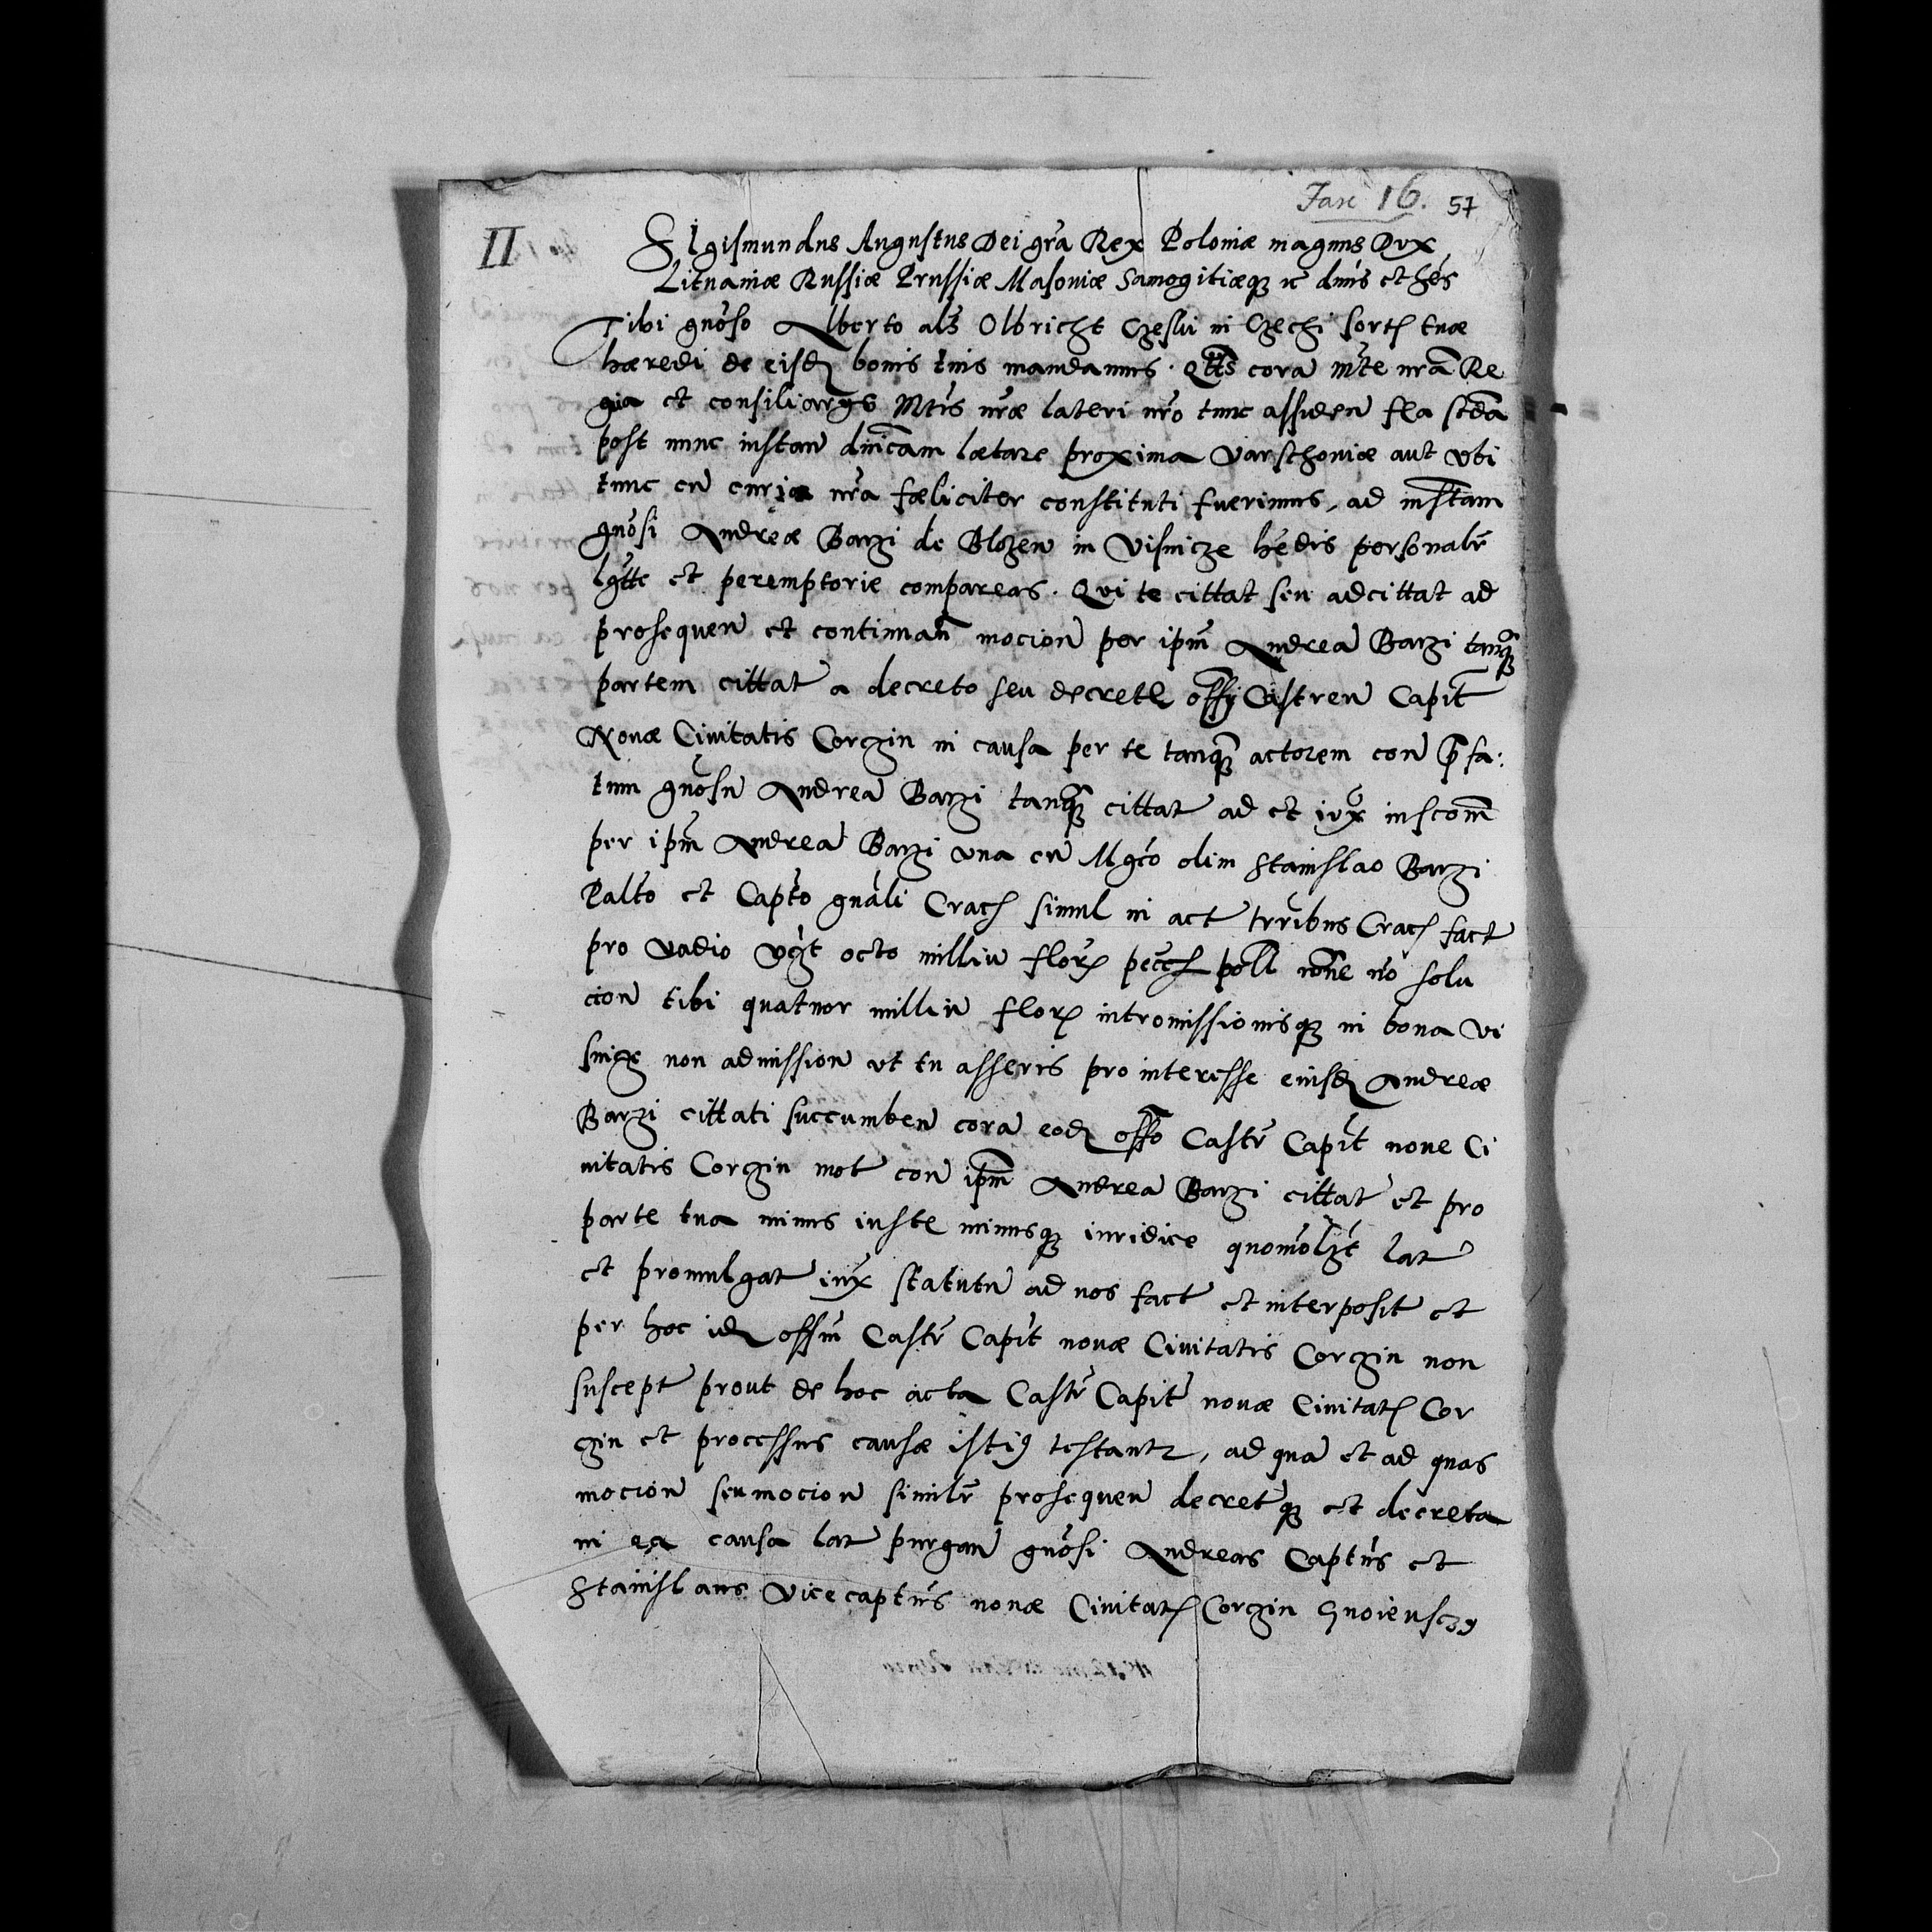 Fasc 16. 57
II
Sigismundus Augustus Dei gr̃a Rex Poloniæ magnus Dux
Lituaniæ Russiæ Prussiæ Masoviæ Samogitiæq̃ ꝛc dñis et hẽs
Tibi gnõso Alberto als̃ Olbricht in Czechi sort tuæ
hæredi de eisd bonis tuis mandamus. Qtts̃ cora mt̃e nr̃a Re
gia et consiliarijs Mt̃is nr̃æ lateri nr̃o tunc assiden̄ fr̃a scda
post nunc instan̄ dñicam lætare proxima Varschoviæ aut vbi
tunc cũ curia nr̃a fæliciter constituti fuerimus, ad instam
gnõsi Andreæ Barzi de Blozew in Visnicze hẽdis personalr̃
lgtt̃e et peremptorie compareas. Qui te cittat seu adcittat ad
prosequen̄ et continuan̄ mocion̄ per ipm̃ Andrea Barzi tanq̃
partem cittat a decreto seu decret offij Castren̄ Capit
Novæ Civitatis Corczin in causa per te tanq̃ actorem con̄ p̃fa:
tum gnõsũ Andrea Barzi tanq̃ cittat ad et iux̃
per ipm̃ Andrea Barzi una cũ Mgco olim Stanislao Barzi
Palto et Capto gnãli Crac simul in act trribus Crac fact
pro vadio octo milliũ flor pecc poll nõne nõ solu
cion̄ tibi quatuor milliũ flor intromissionisq̃ in bona Vi
snicze non admission̄ ut tu asseris pro interesse eiusd Andreæ
Barzi cittati succumben̄ cora eod offo Castr̃ Capit nove Ci
vitatis Corczin mot con̄ ipm̃ Andrea Barzi cittat et pro
parte tua minus iuste minusq̃ iuridice quomõlzt lat
et promulgat iux̃ statutũ ad nos fact et interposit et
per hoc id offm̃ Castr̃ Capit novæ Civitatis Corczin non
suscept prout de hoc acta Castr̃ Capit novæ Civitat Cor
czin et processus causæ isti9 testantr, ad qua et ad quas
mocion̄ seu mocion̄ similr̃ prosequen̄ decretq̃ et decreta
in ea causa lat purgan̄ gnõsi Andreas Captñs et
Stanislaus Vicecaptñs novæ Civitat Corczin Gnoiensczy